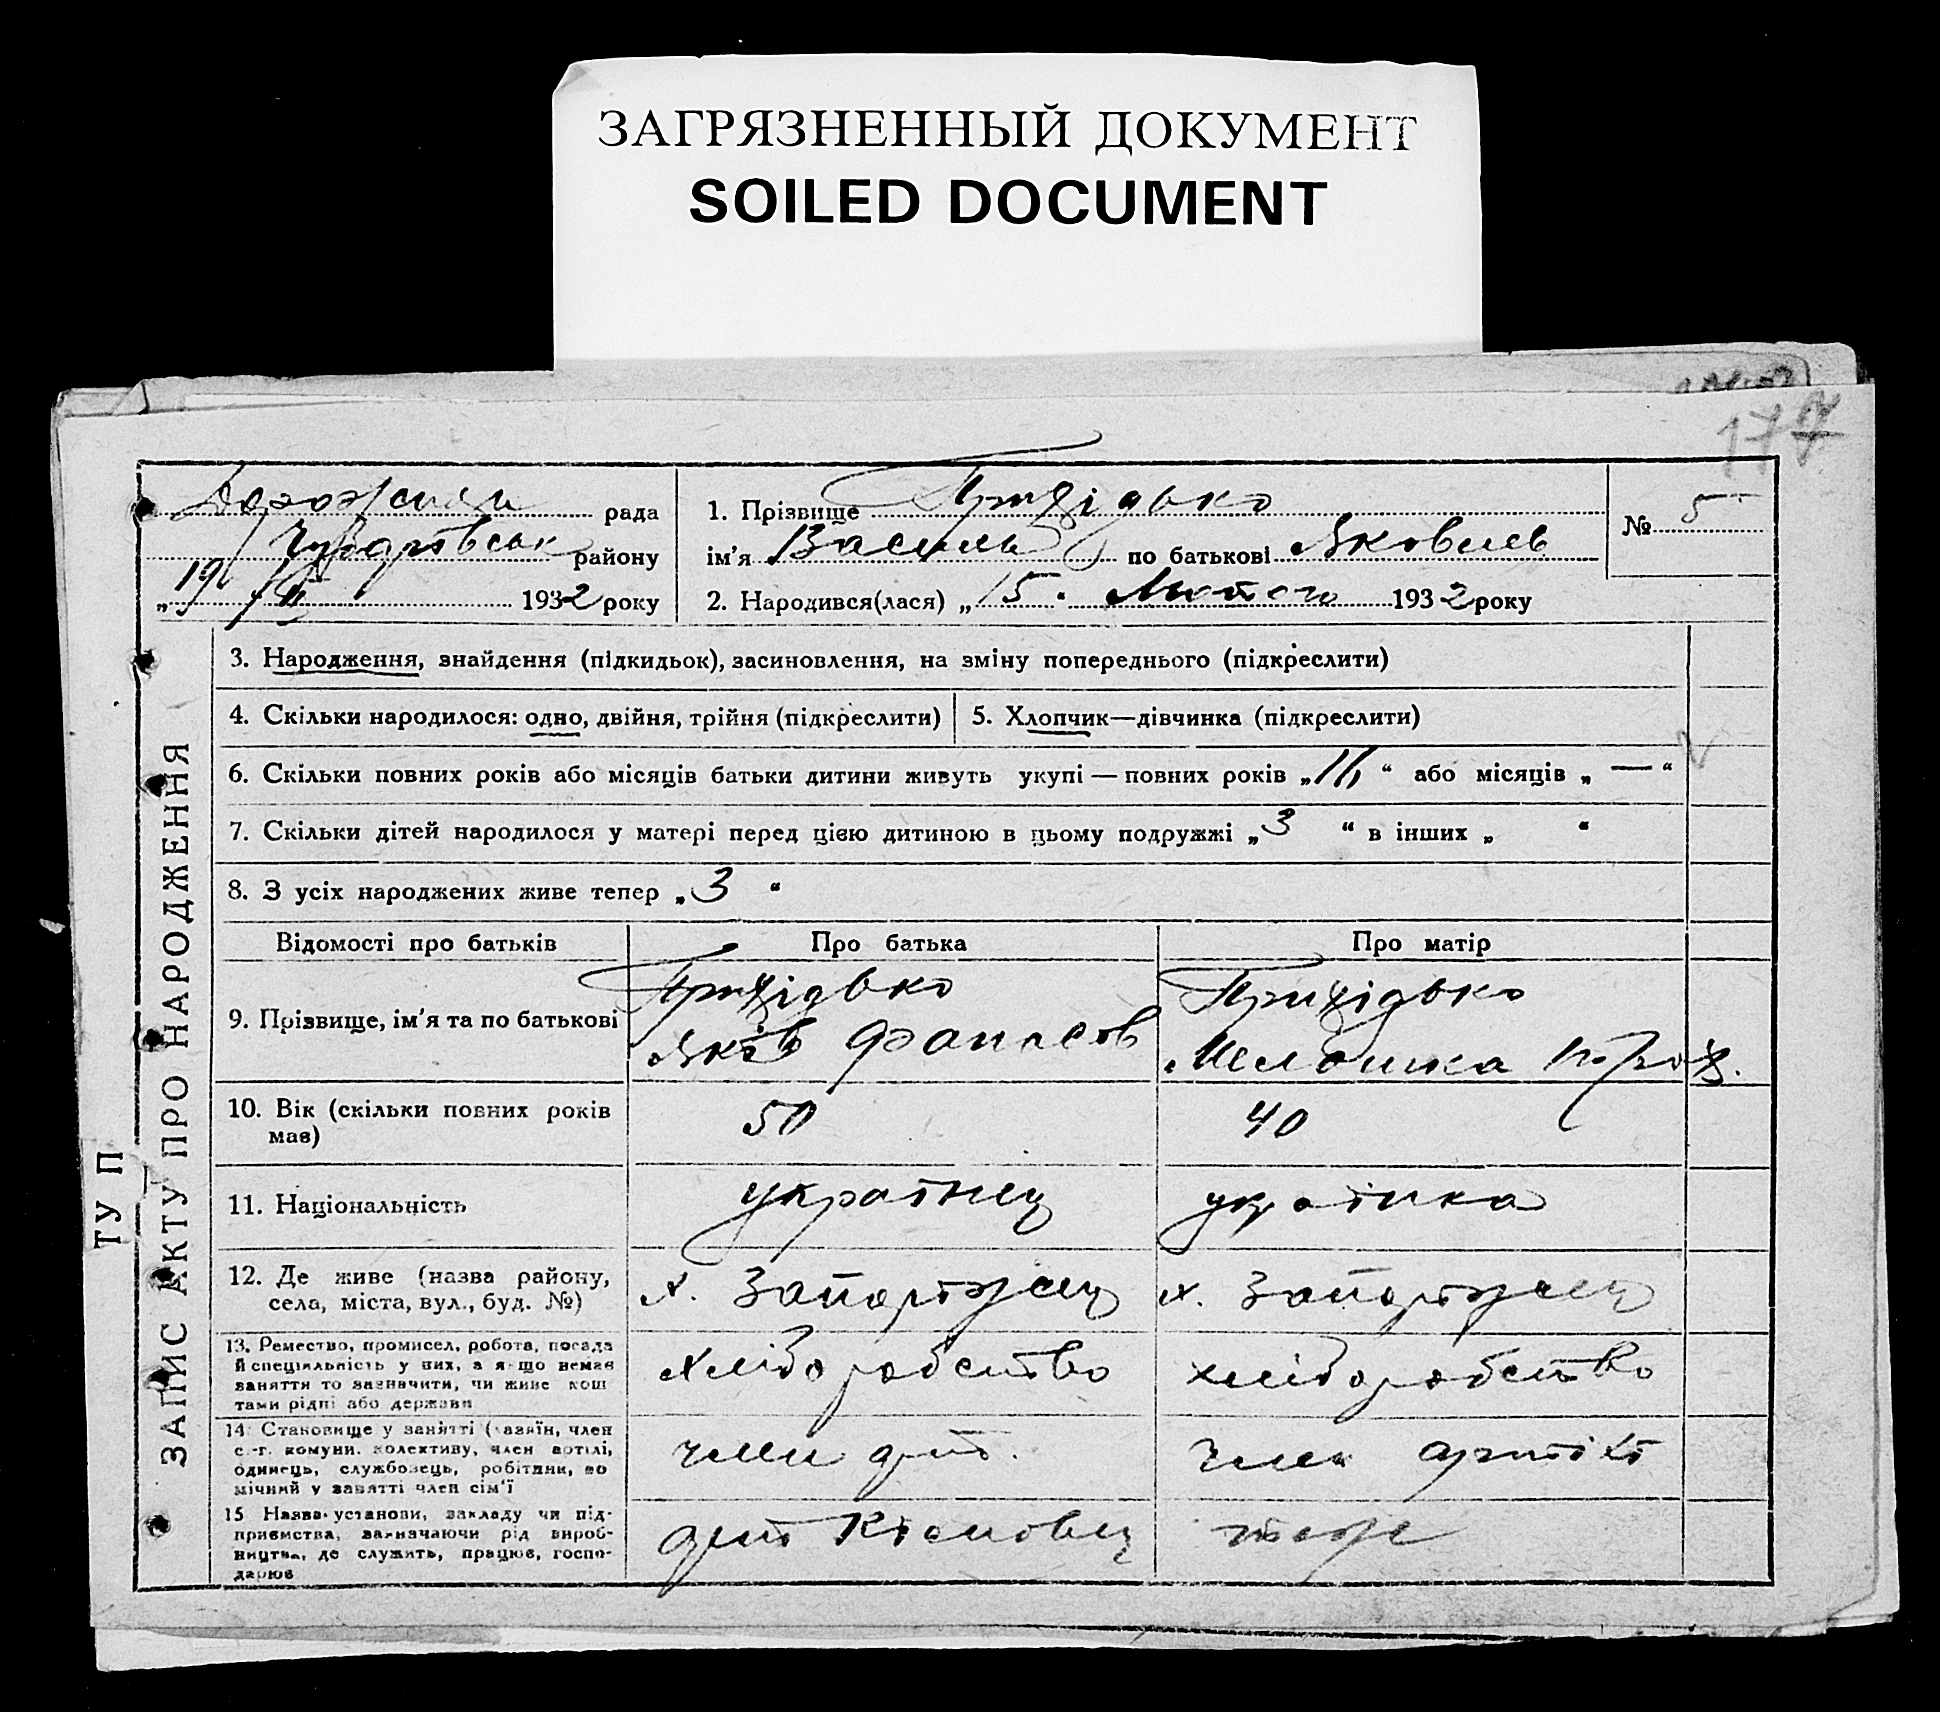 ЗАГРЯЗНЕННЫЙ ДОКУМЕНТ
SOILED DOCUMENT
177
рада
району
„19 / II 1932 року
1. Прізвище
ім'я Василь по батькові Яковлев
2. Народився(лася) „15. Лютого 1932 року
№ 5
3. Народження, знайдення (підкидьок), засиновлення, на зміну попереднього (підкреслити)
4. Скільки народилося: одно, двійня, трійня (підкреслити)
5. Хлопчик—дівчинка (підкреслити)
6. Скільки повних років або місяців батьки дитини живуть укупі — повних років „11“ або місяців „ — “
7. Скільки дітей народилося у матері перед цією дитиною в цьому подружжі „3 “ в інших „ “
8. З усіх народжених живе тепер „3 “
Відомості про батьків
Про батька
Про матір
9. Прізвище, ім'я та по батькові
Яків
10. Вік (скільки повних років
має)
50
40
11. Національність
українец
українка
12. Де живе (назва району,
села, міста, вул., буд. №)
х. Запорожец
х. Запорожец
13. Ремество, промисел, робота, посада
й спеціяльність у них, а якщо немає
заняття то зазначити, чи живе кош
тами рідні або держави
хліборобство
хліборобство
14. Становище у занятті (хазяїн, член
с.-г. комуни. колективу, член артілі,
одинець, службовець, робітник, по
мічний у занятті член сім'ї
член арт.
член артілі
15 Назва установи, закладу чи під-
приємства, зазначаючи рід вироб-
ництва, де служить, працює, госпо-
дарює
арт
тоже
ЗАПИС АКТУ ПРО НАРОДЖЕННЯ
ТУ П